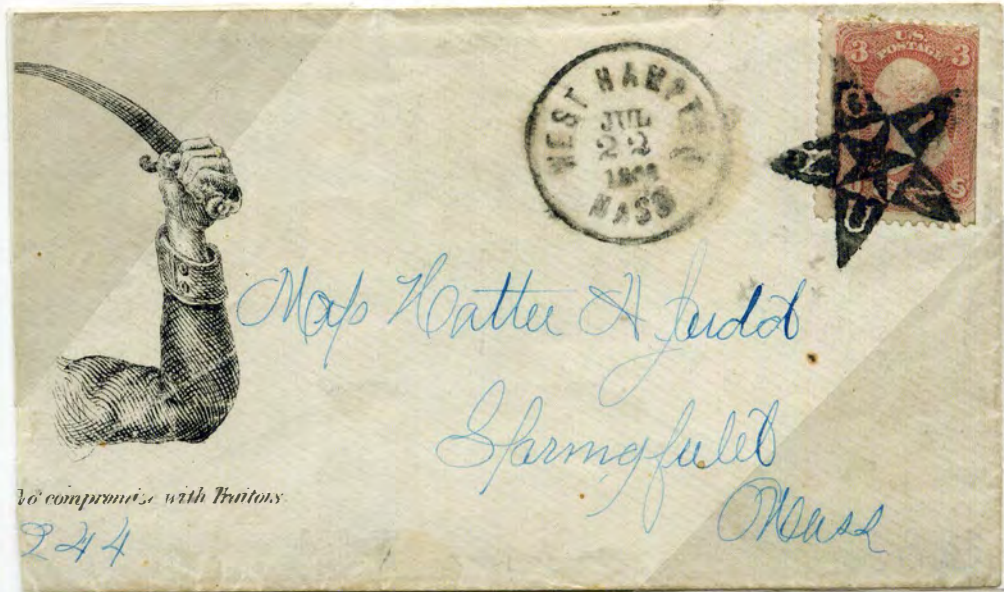 WEST HAMPTON
JUL
22
MASS
U.S.
POSTAGE
3 3
U N I O N
Hattie H Judd
Springfield
Mass
No compromise with Traitors.
244